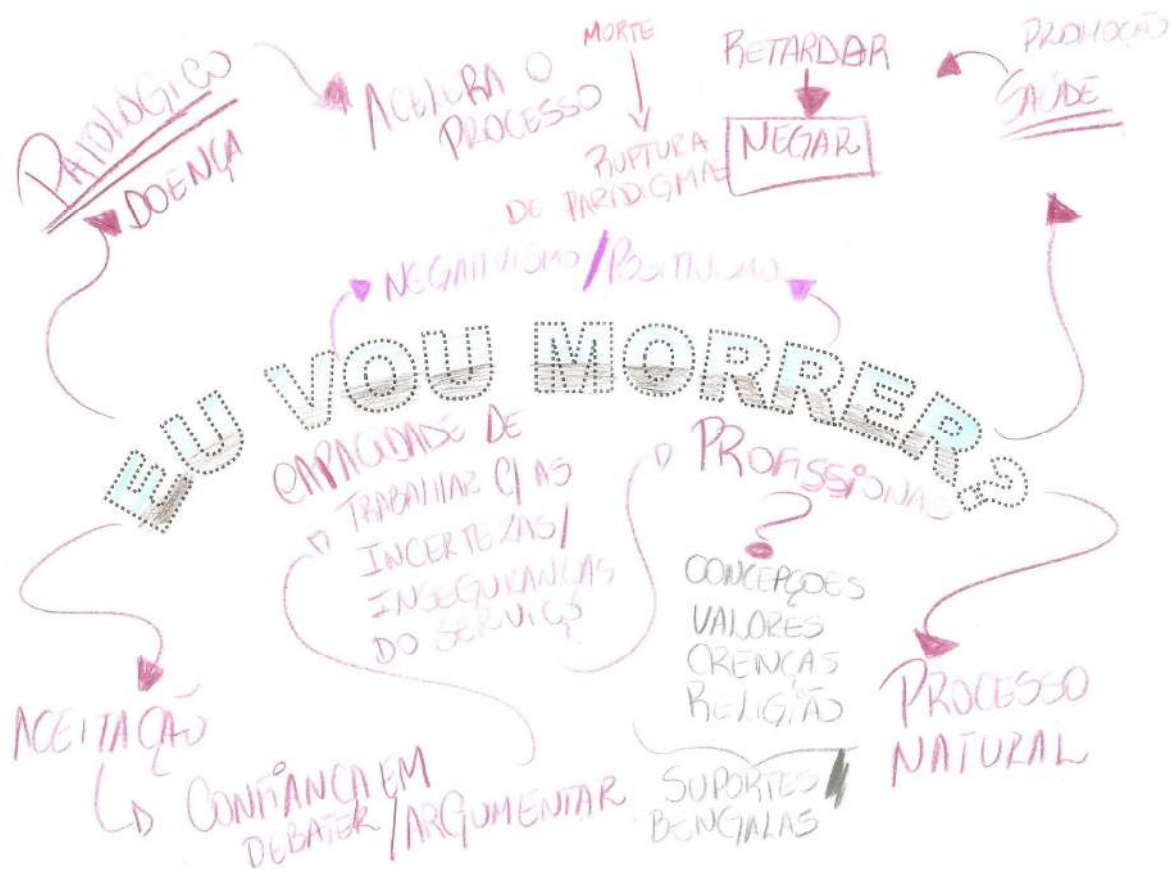 PATOLÓGICO
DOENÇA
ACELERA O
PROCESSO
MORTE
RUPTURA
DE PARADIGMAS
RETARDAR
NEGAR
PROMOÇÃO
SAÚDE
NEGATIVISMO / POSITIVISMO
EU VOU MORRER?
CAPACIDADE DE
TRABALHAR C/ AS
INCERTEZAS/
INSEGURANÇAS
DO SERVIÇO
PROFISSIONAIS
CONCEPÇÕES
VALORES
CRENÇAS
RELIGIÃO
SUPORTES/
BENGALAS
PROCESSO
NATURAL
ACEITAÇÃO
CONFIANÇA EM
DEBATER /ARGUMENTAR